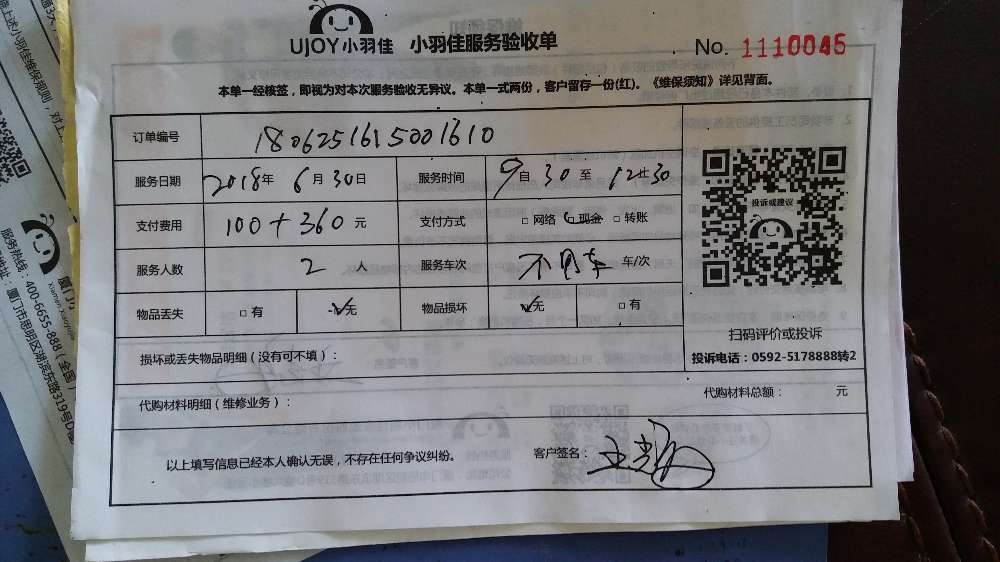 UJOY小羽佳 小羽佳服务验收单 No. 1110046
本单一经核签，即视为对本次服务验收无异议。本单一式两份，客户留存一份(红)。《维保须知》详见背面。
订单编号 1806251615001610
服务日期 2018年 6月30日 服务时间 9自30至12时30
支付费用 100+360元 支付方式 □网络 □现金 □转账
服务人数 2人 服务车次 不用车 车/次
物品丢失 □有 ✓无 物品损坏 ✓无 □有
投诉或建议
扫码评价或投诉
投诉电话：0592-5178888转2
损坏或丢失物品明细（没有可不填）：
代购材料明细（维修业务）： 代购材料总额： 元
以上填写信息已经本人确认无误，不存在任何争议纠纷。 客户签名：
UJOY小羽佳
服务热线：400-6655-888（全国）
厦门市思明区湖滨东路319号D幢